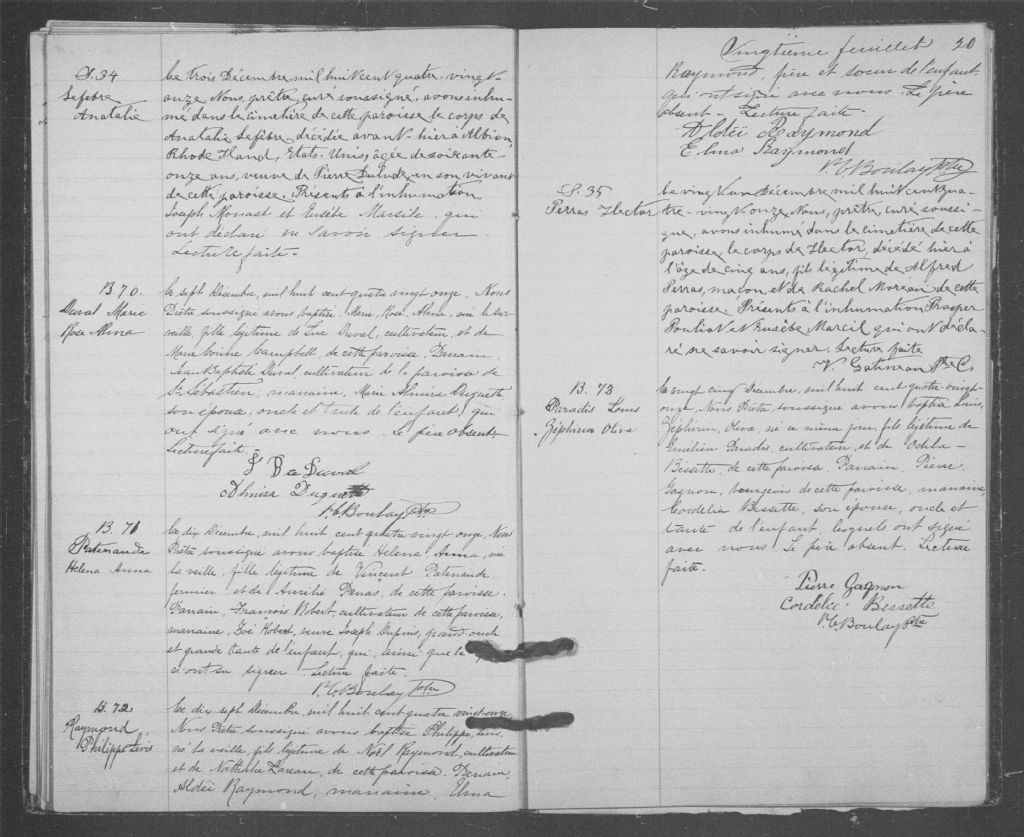 S. 34
Lefebre
Anatalie
Le trois Décembre mil huit cent quatre-vingt
onze, Nous, prêtre, curé soussigné, avons inhu-
mé dans le cimetière de cette paroisse le corps de
Anatalie Lefèbre, décédée avant-hier à Albion,
Rhode Iland, Etats-Unis, âgée de soixante-
onze ans, veuve de Pierre Lulude, en son vivant
de cette paroisse. Présents à l'inhumation
Joseph Monast et Eusèbe Marsile, qui
ont déclaré ne savoir signer.
Lecture faite.
B. 70.
Duval Marie
Rose Alma
Le sept Décembre, mil huit cent quatre vingt onze, Nous
Prêtre soussigné avons baptisé, Marie, Rose, Alma, née la sur-
veille, fille légitime de Luc Duval, cultivateur, et de
Marie Campbell, de cette paroisse. Parrain,
Jean Baptiste Duval, cultivateur de la paroisse de
St Sébastien, marraine, Marie Duquette
son épouse, oncle et tante de l'enfant, qui
ont signé avec nous. Le père absent.
Lecture faite.
J B a Duval
Duquette
Boulay Ptre
B. 71
Patenaude
Helena Anna
Le dix Décembre, mil huit cent quatre vingt onze, Nous
Prêtre soussigné avons baptisé Helena, Anna, née
la veille, fille légitime de Vincent Patenaude
fermier et de Aurélie de cette paroisse.
Parrain, François Robert, cultivateur de cette paroisse,
marraine, Zoé Robert, veuve Joseph Dupuis, grand oncle
et grande tante de l'enfant, qui, ainsi que le
ci ont su signer. Lecture faite.
Boulay Ptre
B. 72
Raymond
Philippe Lévis
Le dix sept Décembre, mil huit cent quatre vingt onze
Nous Prêtre soussigné avons baptisé Philippe, Lévis,
né la veille, fils légitime de Noël Raymond, cultivateur
et de Nathalie Lareau, de cette paroisse. Parrain,
Aldéï Raymond, marraine, Elma
Vingtième feuillet 20
Raymond, frère et soeur de l'enfant
qui ont signé avec nous. Le père
absent. Lecture faite.
Aldéï Raymond
Elma Raymond
Boulay Ptre
S. 35
Perras Hector
Le vingt un Décembre mil huit cent qua-
tre-vingt onze, Nous, prêtre, curé soussi-
gné, avons inhumé dans le cimetière de cette
paroisse le corps de Hector, décédé hier à
l'âge de cinq ans, fils légitime de Alfred
Perras, maçon, et de Rachel Moreau de cette
paroisse. Présents à l'inhumation Prosper
Pouliot et Eusèbe Marcil qui ont décla-
ré ne savoir signer. Lecture faite
V. Gatineau Ptre C.
B. 73
Paradis Louis
Zéphirin Oliva
Le vingt cinq Décembre, mil huit cent quatre-vingt-
onze, Nous Prêtre soussigné avons baptisé Louis,
Zéphirin, Oliva, né ce même jour, fils légitime de
Emélien Paradis, cultivateur, et de Odila
Bessette, de cette paroisse. Parrain, Pierre
Gagnon, bourgeois de cette paroisse, marraine,
Cordélia Bessette, son épouse, oncle et
tante de l'enfant, lesquels ont signé
avec nous. Le père absent. Lecture
faite.
Pierre Gagnon
Cordélie Bessette
Boulay Ptre